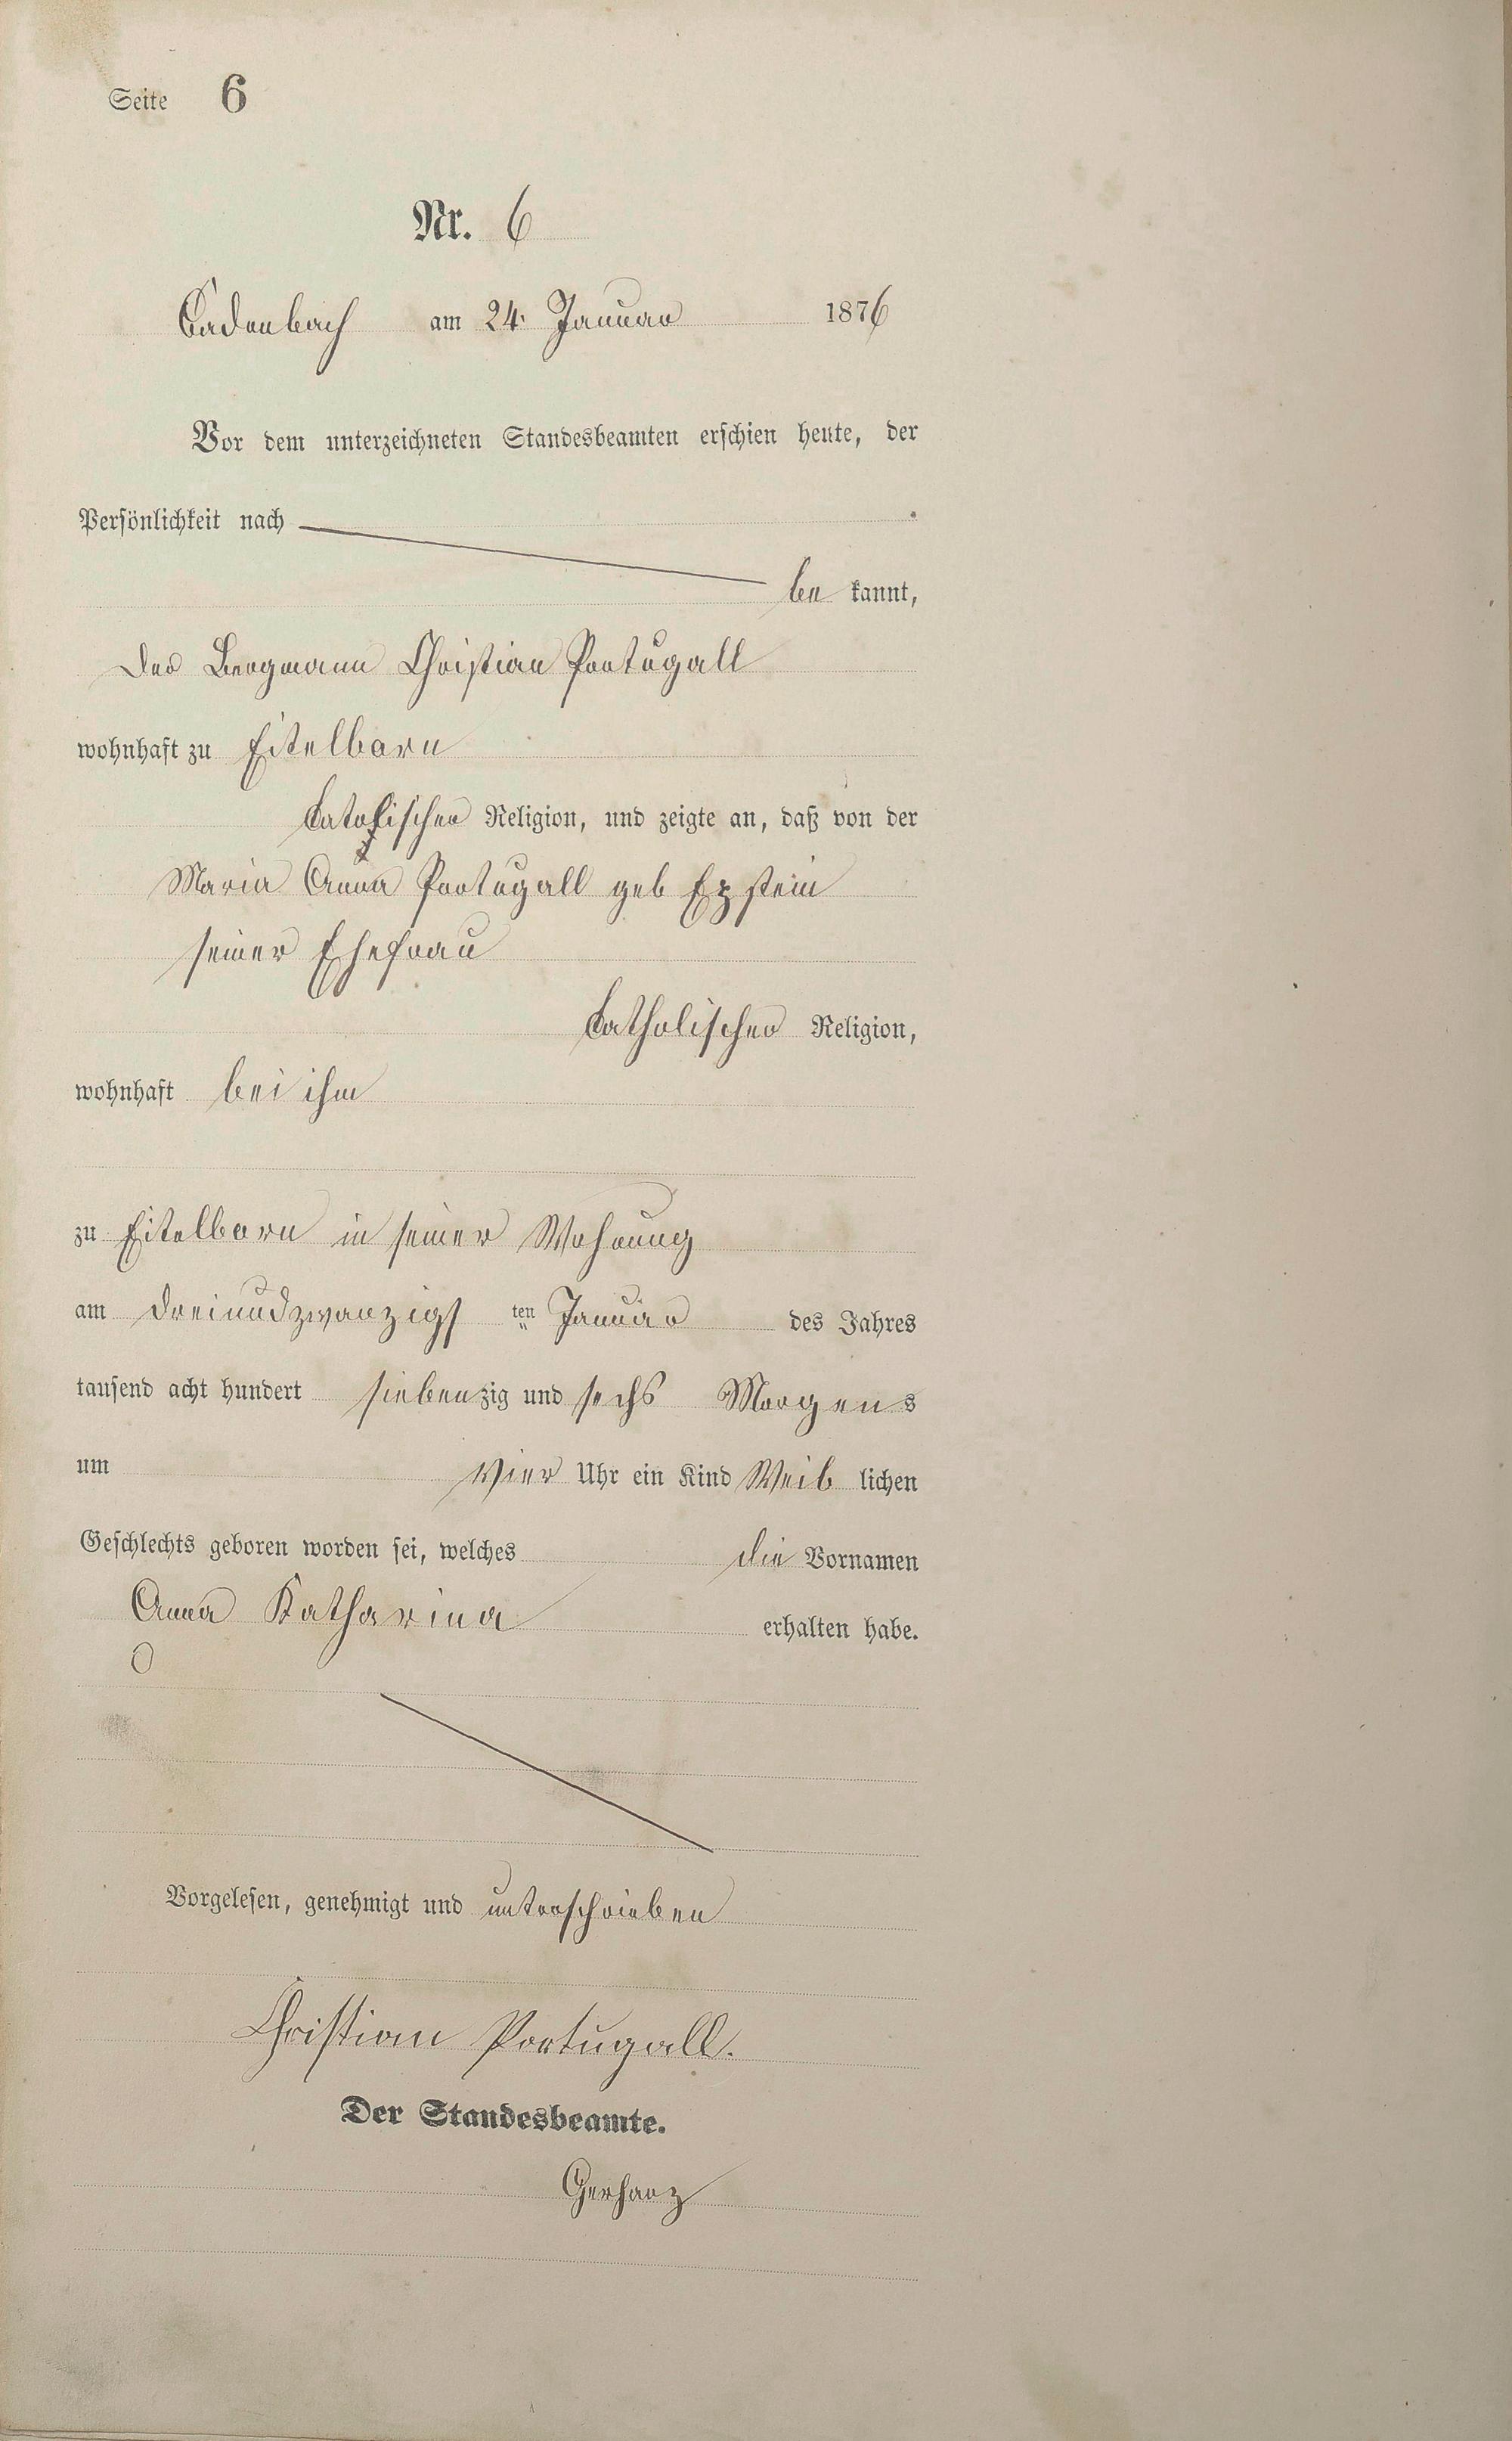 Seite 6
Nr. 6
Cadenbach am 24. Januar 1876
Vor dem unterzeichneten Standesbeamten erschien heute, der
Persönlichkeit nach
be kannt,
der Bergmann Christian Portugall
wohnhaft zu Eitelborn
katolischer Religion, und zeigte an, daß von der
Maria Anna Portugall geb Epstein
seiner Ehefrau
katholischer Religion,
wohnhaft bei ihm
zu Eitelborn in seiner Wohnung
am dreiundzwanzigs ten Januar des Jahres
tausend acht hundert siebenzig und sechs Morgens
um vier Uhr ein Kind Weib lichen
Geschlechts geboren worden sei, welches die Vornamen
Anna Katharina erhalten habe.
Vorgelesen, genehmigt und unterschrieben
Christian Portugall.
Der Standesbeamte.
Gerharz